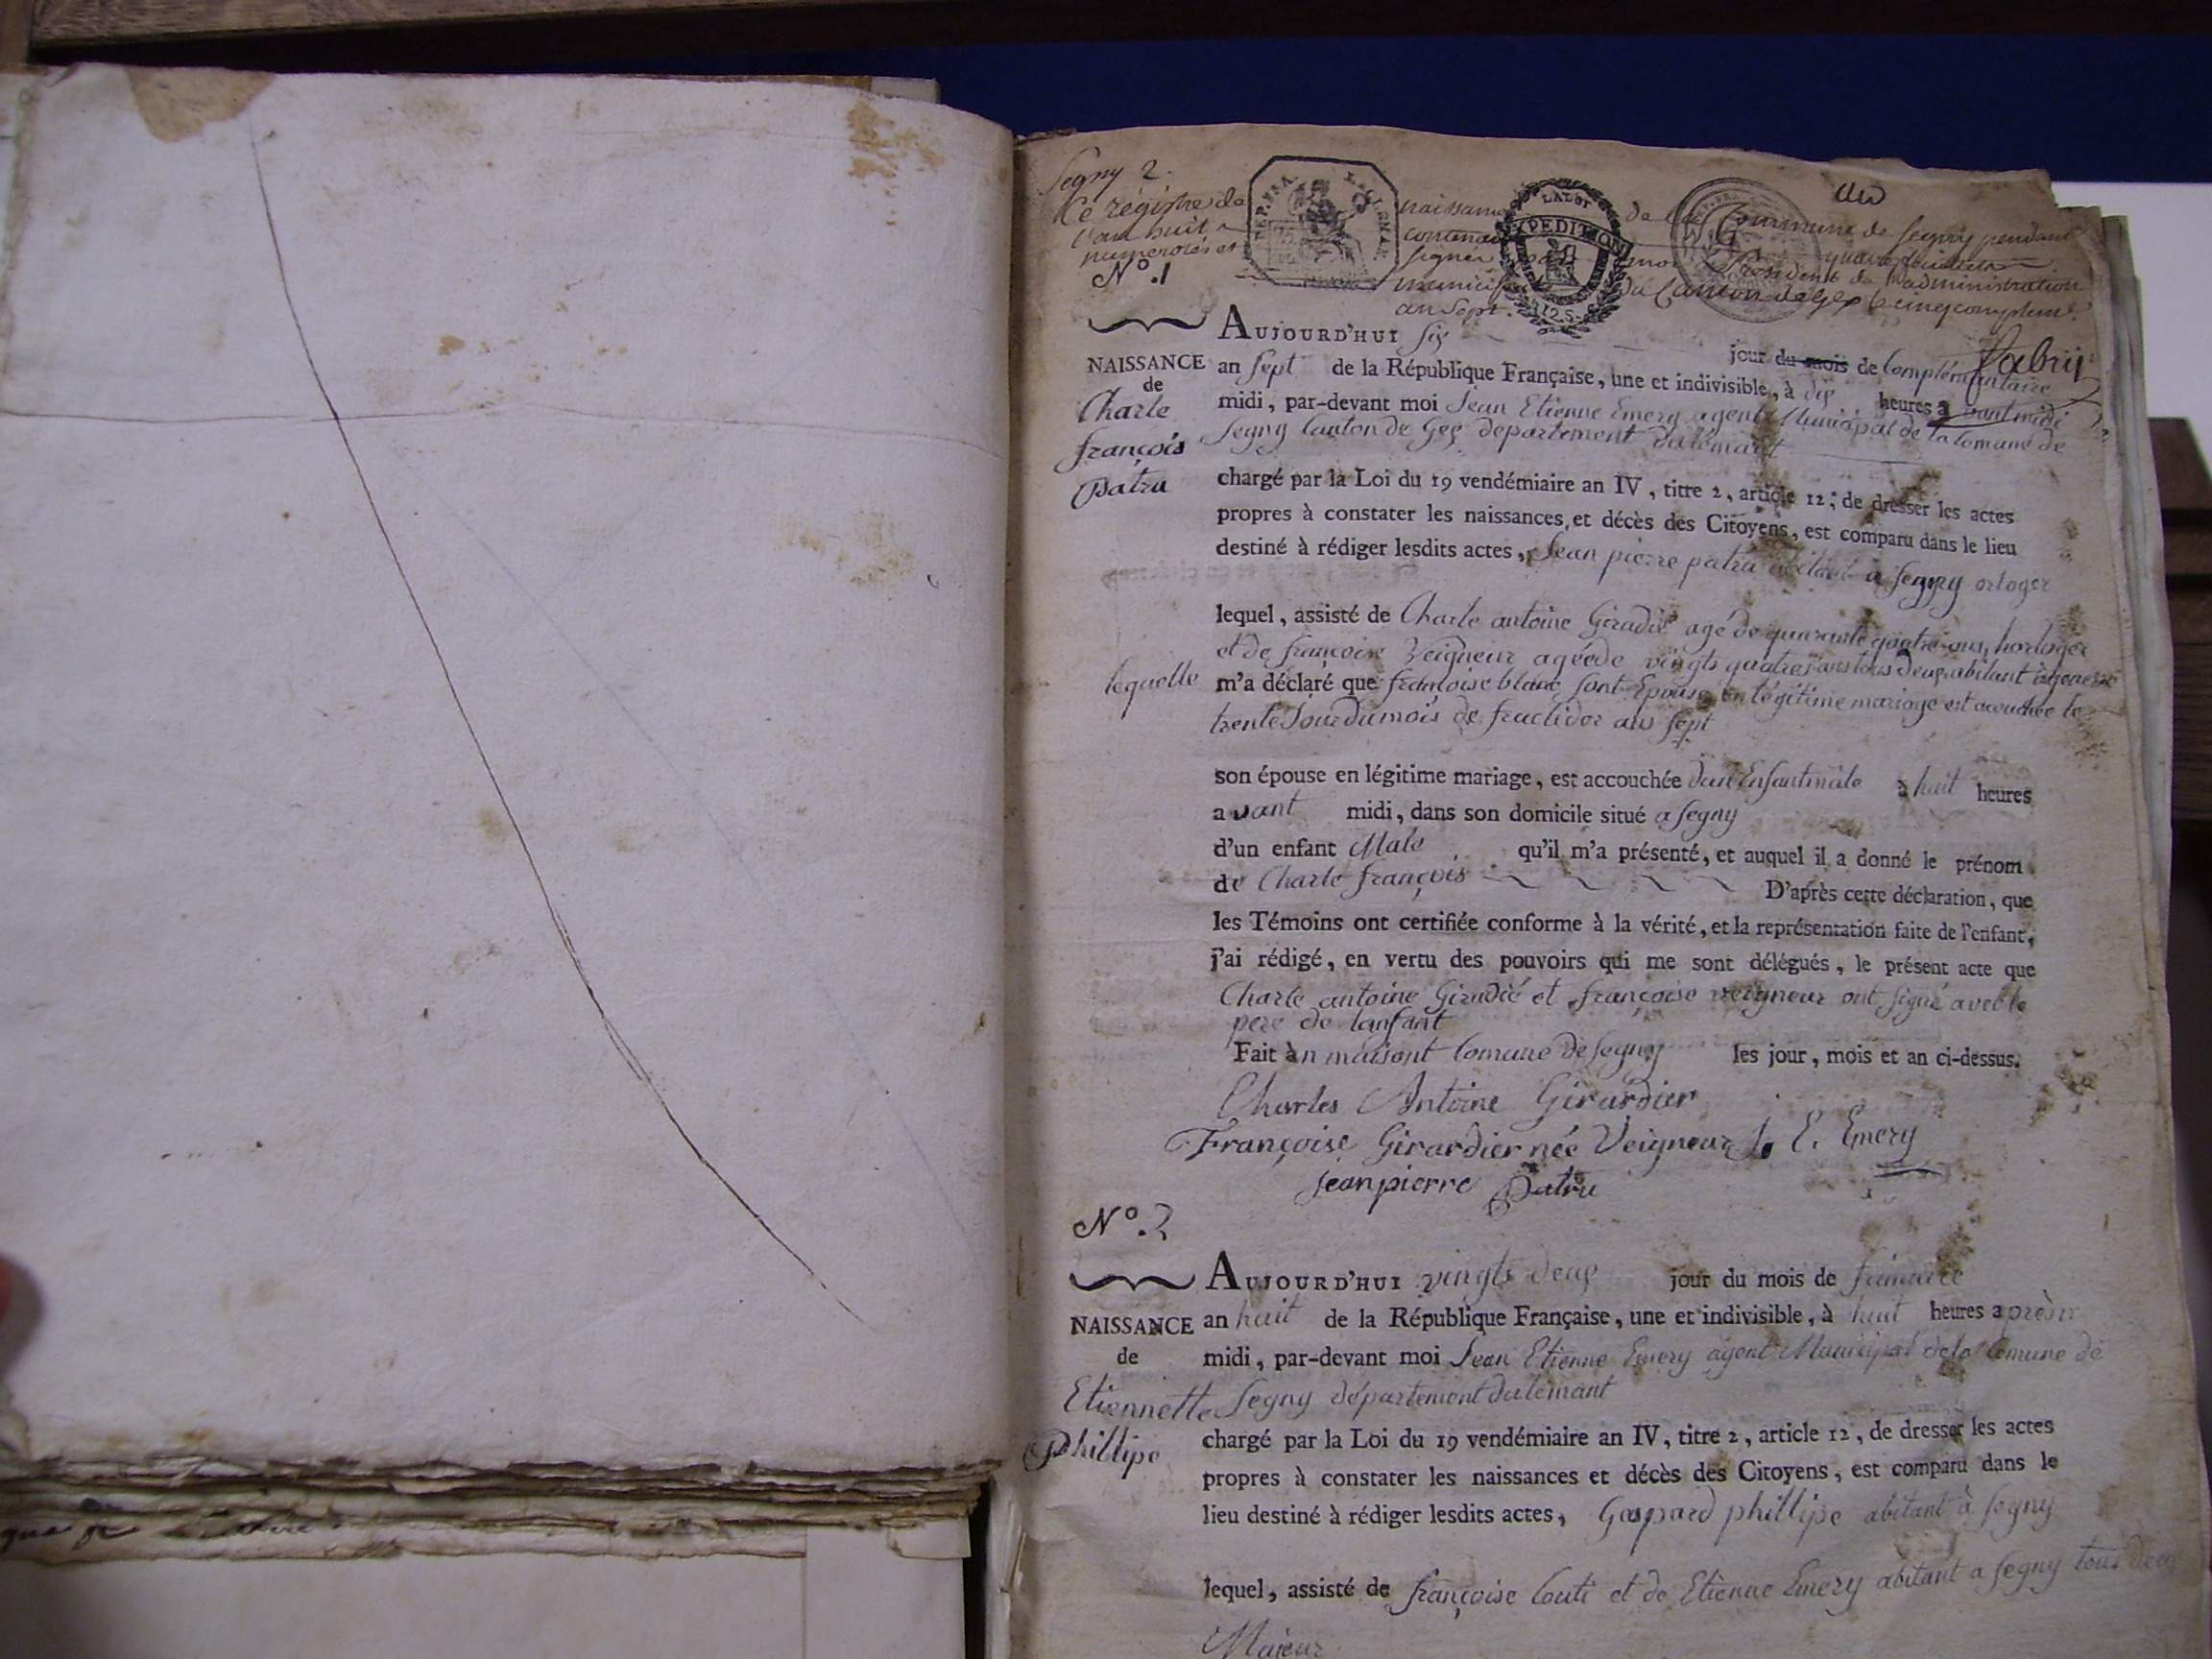 Segny 2.
Ce registre de naissance de la Commune de Segny pendant
l'an huit contenant quatre feuillets
numerotés et signés par moi President de l'administration
municip du Canton de Gex le cinq complem.
an Sept.
Fabry
REP. FRA.
EXPEDITION
N°. 1
NAISSANCE
de
Charle
françois
patru
AUJOURD'HUI six jour du mois de Complémentaire
an Sept de la République Française, une et indivisible, à dix heures avant midi
midi, par-devant moi Jean Etienne Emery agent Municipal de la Comune de
Segny Canton de Gex département du lémant
chargé par la Loi du 19 vendémiaire an IV, titre 2, article 12, de dresser les actes
propres à constater les naissances et décès des Citoyens, est comparu dans le lieu
destiné à rédiger lesdits actes, Jean pierre patru abitant a Segny orloger
lequel, assisté de Charle antoine Giradié agé de quarante quatre ans, horloger
et de francoise Veigneur agéede vingts quatres ans tous deux abitant à
lequelle m'a déclaré que francoise blanc sont Epouse en légitime mariage est acouchée le
trente Jour du mois de fructidor an Sept
son épouse en légitime mariage, est accouchée dun Enfant mâle à huit heures
avant midi, dans son domicile situé a Segny
d'un enfant Male qu'il m'a présenté, et auquel il a donné le prénom
de Charle françois D'après cette déclaration, que
les Témoins ont certifiée conforme à la vérité, et la représentation faite de l'enfant,
j'ai rédigé, en vertu des pouvoirs qui me sont délégués, le présent acte que
Charle antoine Giradié et françoise veigneur ont signé avec le
pere de lanfant
Fait àn maisont Comune de Segny les jour, mois et an ci-dessus.
Charles Antoine Girardier
Françoise Girardier née Veigneur J. E. Emery
jeanpierre Patru
N°. 2
NAISSANCE
de
Etiennette
Phillipe
AUJOURD'HUI vingts deux jour du mois de frimaire
an huit de la République Française, une et indivisible, à huit heures après
midi, par-devant moi Jean Etienne Emery agent Municipal dela Comune de
Segny département du lémant
chargé par la Loi du 19 vendémiaire an IV, titre 2, article 12, de dresser les actes
propres à constater les naissances et décès des Citoyens, est comparu dans le
lieu destiné à rédiger lesdits actes, Gaspard phillipe abitant à Segny
lequel, assisté de françoise Couti et de Etienne Emery abitant a Segny tous deux
Majeur